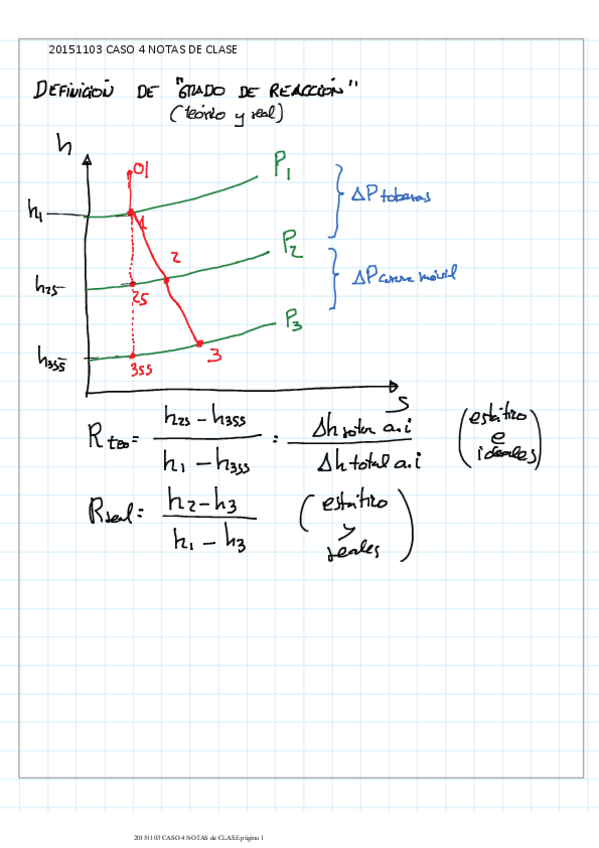 20151103 CASO 4 NOTAS DE CLASE
DEFINICIÓN DE "GRADO DE REACCIÓN"
(teórico y real)
h
01
P1
h1
1
ΔP toberas
P2
2
h2s
2s
ΔP corona móvil
P3
h3ss
3
3ss
s
Rteo = h2s - h3ss / h1 - h3ss = Δh rotor a.i / Δh total a.i (estático e ideales)
Rreal = h2 - h3 / h1 - h3 (estático y reales)
20151103 CASO 4 NOTAS de CLASE página 1